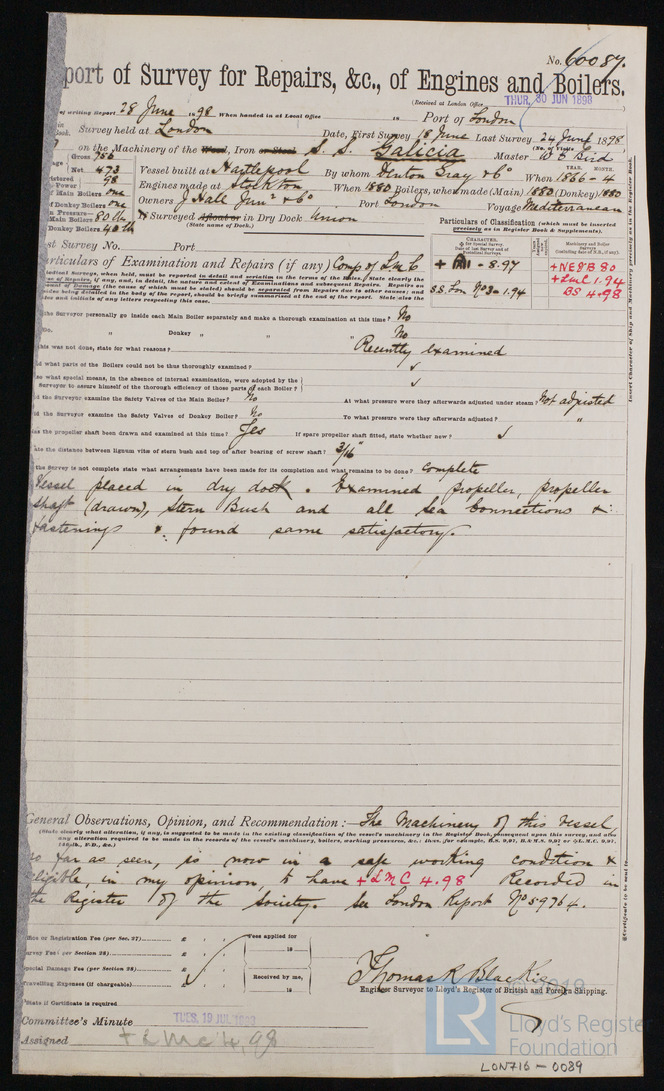 No. 60087.
port of Survey for Repairs, &c., of Engines and Boilers.
(Received at London Office THUR. 30 JUN 1898 )
of writing Report 28 June 1898 When handed in at Local Office is Port of London
Book. Survey held at London Date, First Survey 18 June Last Survey 24 June 1898
(No. of Visits 6)
on the Machinery of the Wood, Iron or Steel S. S. Galicia Master W B Bird
Gross 756
Net 473
Vessel built at Hartlepool By whom Denton Gray & Co When 1866 - 4
YEAR. MONTH.
Power 98
Engines made at Stockton When 1880 Boilers, when made (Main) 1880 (Donkey) 1880
Main Boilers one
Donkey Boilers one
Owners J Hall Junr & Co Port London Voyage Mediterranean
Pressure—
Main Boilers 80 lb
Donkey Boilers 40 lb
Surveyed Afloat or in Dry Dock Union
(State name of Dock.)
Particulars of Classification (which must be inserted
precisely as in Register Book & Supplements).
st Survey No. Port
CHARACTER.
+ A1 - 8.97
S.S. Lon No3 - 1.94
+NE&B 80
+LMC 1.94
BS 4.98
articulars of Examination and Repairs (if any) Comp of LMC
the Surveyor personally go inside each Main Boiler separately and make a thorough examination at this time? No
Do. " Donkey " " " " No
this was not done, state for what reasons? Recently examined
d what parts of the Boilers could not be thus thoroughly examined? ✓
so what special means, in the absence of internal examination, were adopted by the
Surveyor to assure himself of the thorough efficiency of those parts of each Boiler? ✓
d the Surveyor examine the Safety Valves of the Main Boiler? No At what pressure were they afterwards adjusted under steam? Not adjusted
d the Surveyor examine the Safety Valves of Donkey Boiler? No To what pressure were they afterwards adjusted? "
as the propeller shaft been drawn and examined at this time? Yes If spare propeller shaft fitted, state whether new? ✓
ate the distance between lignum vitæ of stern bush and top of after bearing of screw shaft? 3/16"
the Survey is not complete state what arrangements have been made for its completion and what remains to be done? Complete
Vessel placed in dry dock. Examined propeller, propeller
shaft (drawn), stern Bush and all sea connections &
fastenings & found same satisfactory.
General Observations, Opinion, and Recommendation:— The Machinery of this Vessel,
(State clearly what alteration, if any, is suggested to be made in the existing classification of the vessel's machinery in the Register Book, consequent upon this survey, and also
any alteration required to be made in the records of the vessel's machinery, boilers, working pressures, &c.; thus, for example, B.S. 9.97, B.& M.S. 9.97 or L.M.C. 9.97,
140 lb., F.D., &c.)
so far as seen, is now in a safe working condition &
eligible in my opinion, to have + LMC 4.98 Recorded in
the Register of the Society. see London Report No 59764.
ffice or Registration Fee (per Sec. 27) £ : : Fees applied for
urvey Fee (per Section 28) £ : : 18
pecial Damage Fee (per Section 28) £ : : Received by me,
ravelling Expenses (if chargeable) £ : : 18
State if Certificate is required
Thomas R Blackie
Engineer Surveyor to Lloyd's Register of British and Foreign Shipping.
Committee's Minute TUES. 19 JUL 1898
Assigned + L M C 4, 98
© 2019
LR
Lloyd's Register
Foundation
LON716-0089